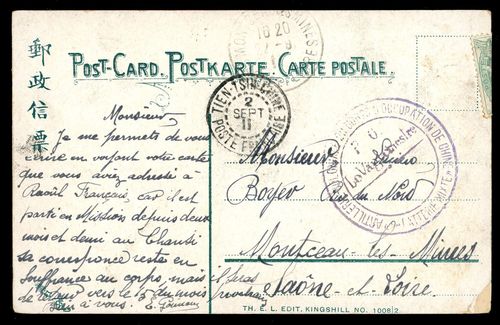 郵政信票
POST-CARD. POSTKARTE. CARTE POSTALE.
TIEN-TSIN-CHINE
2
SEPT
11
POSTE FRANÇAISE
Monsieur
Je me permets de vous
écrire en voyant votre carte
que vous aviez adressée à
Raoul Français, car il est
parti en Mission depuis deux
mois et demi au Chansi
sa correspondance reste en
souffrance au corps, mais il sera
de retour vers le 15 du mois prochain
Bien à vous.
Monsieur
Boyer Rue du Nord
Montceau les Mines
Saône-et-Loire
OCCUPATION DE CHINE
ARTILLERIE
Le Vaguemestre
TH. E. L. EDIT. KINGSHILL NO. 1008/2